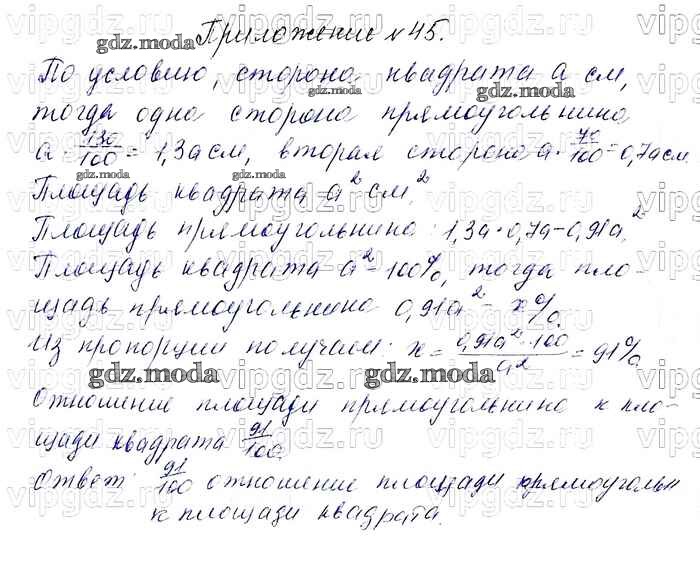 Приложение №45.
По условию, сторона квадрата а см,
тогда одна сторона прямоугольника
а · 130/100 = 1,3а см, вторая сторона а · 70/100 = 0,7а см
Площадь квадрата а² см²
Площадь прямоугольника: 1,3а · 0,7а = 0,91а²
Площадь квадрата а² – 100%, тогда пло-
щадь прямоугольника 0,91а² – х%.
Из пропорции получаем: х = 0,91а² · 100/а² = 91%
Отношение площади прямоугольника к пло-
щади квадрата 91/100.
Ответ: 91/100 отношение площади прямоугольн
к площади квадрата.
gdz.moda
vipgdz.ru